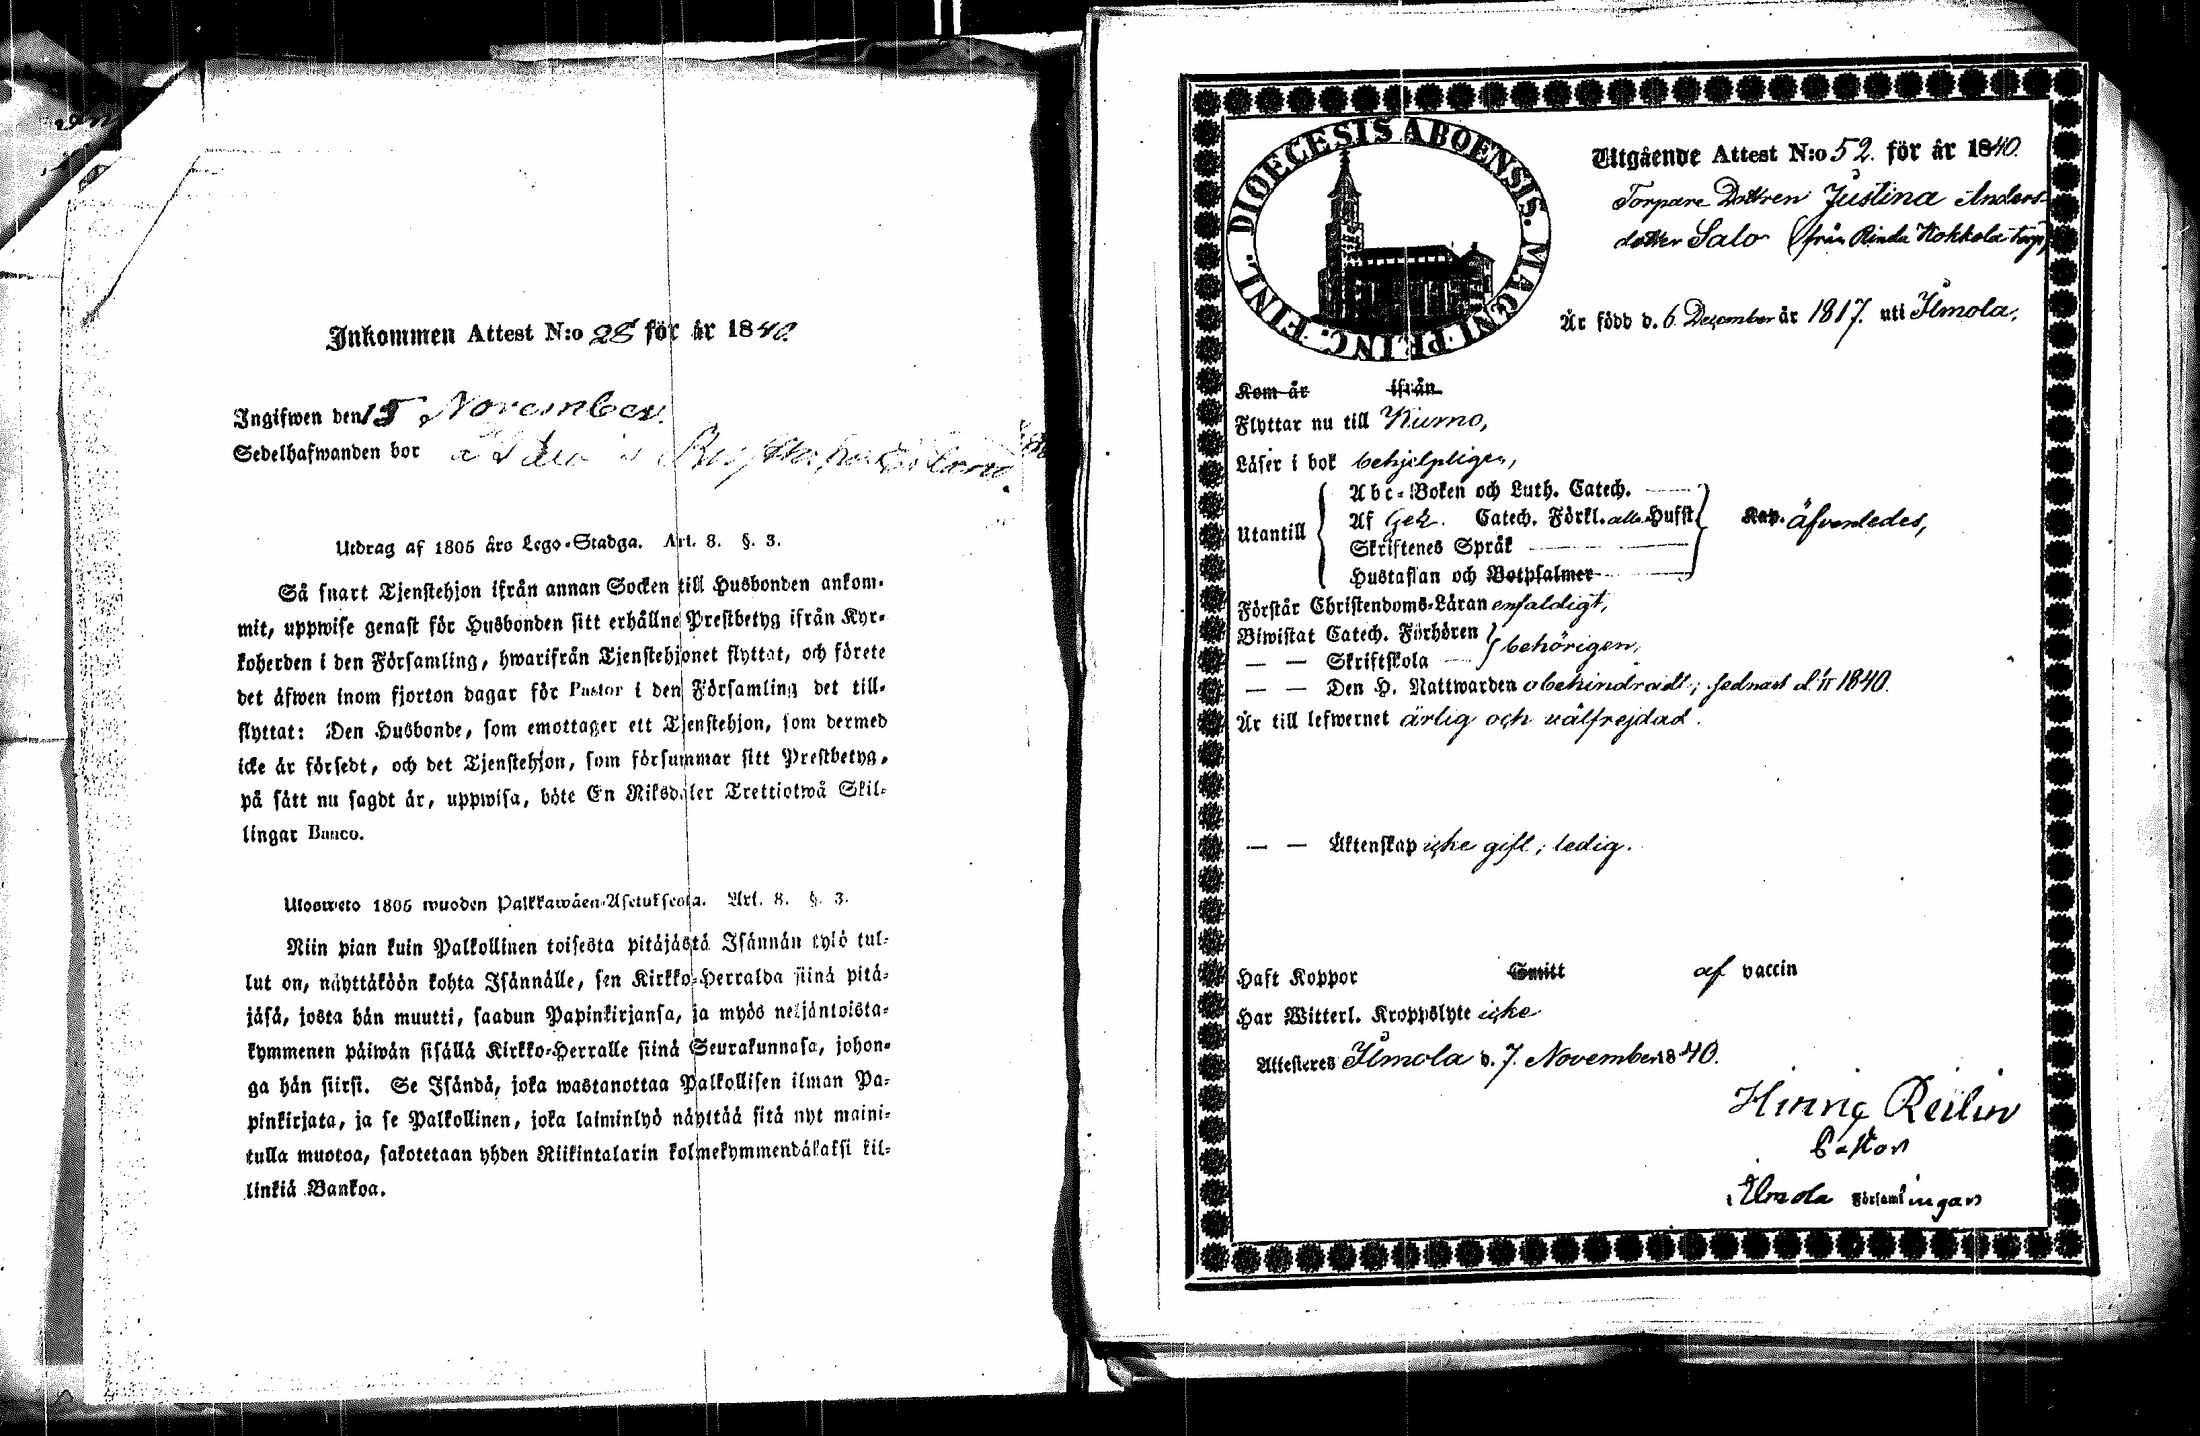 Inkommen Attest N:o 28 för år 1840.
Ingifwen den 15 November.
Sedelhafwanden bor
Utdrag af 1805 års Lego-Stadga. Art. 8. §. 3.
Så snart Tjenstehjon ifrån annan Socken till Husbonden ankom-
mit, uppwise genast för Husbonden sitt erhållne Prestbetyg ifrån Kyr-
koherden i den Församling, hwarifrån Tjenstehjonet flyttat, och förete
det äfwen inom fjorton dagar för Pastor i den Församling det till-
flyttat: Den Husbonde, som emottager ett Tjenstehjon, som dermed
icke är försedt, och det Tjenstehjon, som försummar sitt Prestbetyg,
på sått nu sagdt är, uppwisa, böte En Riksdaler Trettiotwå Skil-
lingar Banco.
Ulosweto 1805 wuoden Palkkawäen-Asetuksesta. Art. 8. §. 3.
Niin pian kuin Palkollinen toisesta pitäjästä Isännän tylö tul-
lut on, näyttäköön kohta Isännälle, sen Kirkko-Herralda siinä pitä-
jäsä, josta hän muutti, saadun Papinkirjansa, ja myös neljäntoista-
kymmenen päiwän sisällä Kirkko-Herralle siinä Seurakunnasa, johon-
ga hän siirsi. Se Isändä, joka wastanottaa Palkollisen ilman Pa-
pinkirjata, ja se Palkollinen, joka laiminlyö näyttää sitä nyt maini-
tulla muotoa, sakotetaan yhden Riikintalarin kolmekymmendäkaksi kil-
linkiä Bankoa.
DIOECESIS ABOENSIS. MAGNI PRINC. FINL.
Utgående Attest N:o 52. för år 1840.
Torpare Dottren Justina Anders-
dotter Salo (från Rinda Kokkola torp)
Är född d. 6 December år 1817. uti Ilmola,
Kom år ifrån
Flyttar nu till Kumo,
Läser i bok behjelpligen,
Utantill
Abc-Boken och Luth. Catech.
Af Gez. Catech. Förkl. alla Hufst. Kap. äfvenledes,
Skriftenes Språk
Hustaflan och Botpsalmer
Förstår Christendoms-Läran enfaldigt,
Biwistat Catech. Förhören
— — Skriftskola behörigen,
— — Den H. Nattwarden obehindradt; sednast d. 1/11 1840.
Är till lefwernet ärlig och välfrejdad.
— — Äktenskap icke gift; ledig.
Haft Koppor Smitt af vaccin
Har Witterl. Kroppslyte icke
Attesteres Ilmola d. 7. November 1840.
Pastor
i Ilmola Församlingar